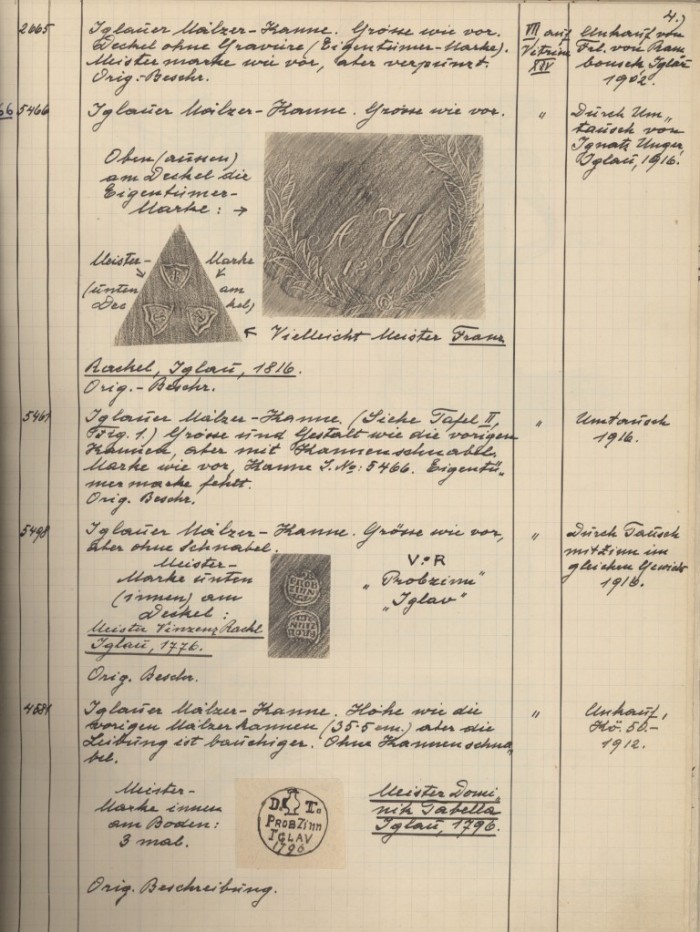 4.)
2665
Iglauer Mälzer-Kanne. Grösse wie vor.
Deckel ohne Gravüre (Eigentümer-Marke).
Meistermarke wie vor, aber verpunzt.
Orig.-Beschr.
VII auf
Vitrine
XIV
Ankauf von
Frl. von Ram
bousek Iglau
1902.
66
5466
Iglauer Mälzer-Kanne. Grösse wie vor.
"
Durch Um„
tausch von
Ignatz Unger,
Iglau, 1916.
Oben (aussen)
am Deckel die
Eigentümer-
Marke: →
A U
Meister-
Marke
(unten
am
Dec
kel)
← Vielleicht Meister Franz
Rachel, Iglau, 1816.
Orig.-Beschr.
5461
Iglauer Mälzer-Kanne. (Siehe Tafel II,
Fig. 1.) Grösse und Gestalt wie die vorigen
Kannen, aber mit Kannenschnabel.
Marke wie vor, Kanne I.No: 5466. Eigentü„
mermarke fehlt.
Orig. Beschr.
"
Umtausch
1916.
5498
Iglauer Mälzer-Kanne. Grösse wie vor,
aber ohne Schnabel.
"
Durch Tausch
mit Zinn im
gleichen Gewicht
1918.
Meister-
Marke unten
(innen) am
Deckel:
Meister Vinzenz Rachl
Iglau, 1776.
PROB
ZINN
V.R
„Probzinn"
„Iglav"
Orig. Beschr.
4581
Iglauer Mälzer-Kanne. Höhe wie die
vorigen Mälzerkannen (35·5 cm.) aber die
Leibung ist bauchiger. Ohne Kannenschna„
bel.
"
Ankauf,
Kö. 50.-
1912.
Meister-
Marke innen
am Boden:
3 mal.
D. T.
PROBZinn
IGLAV
1796
Meister Domi„
nik Tabella
Iglau, 1796.
Orig. Beschreibung.